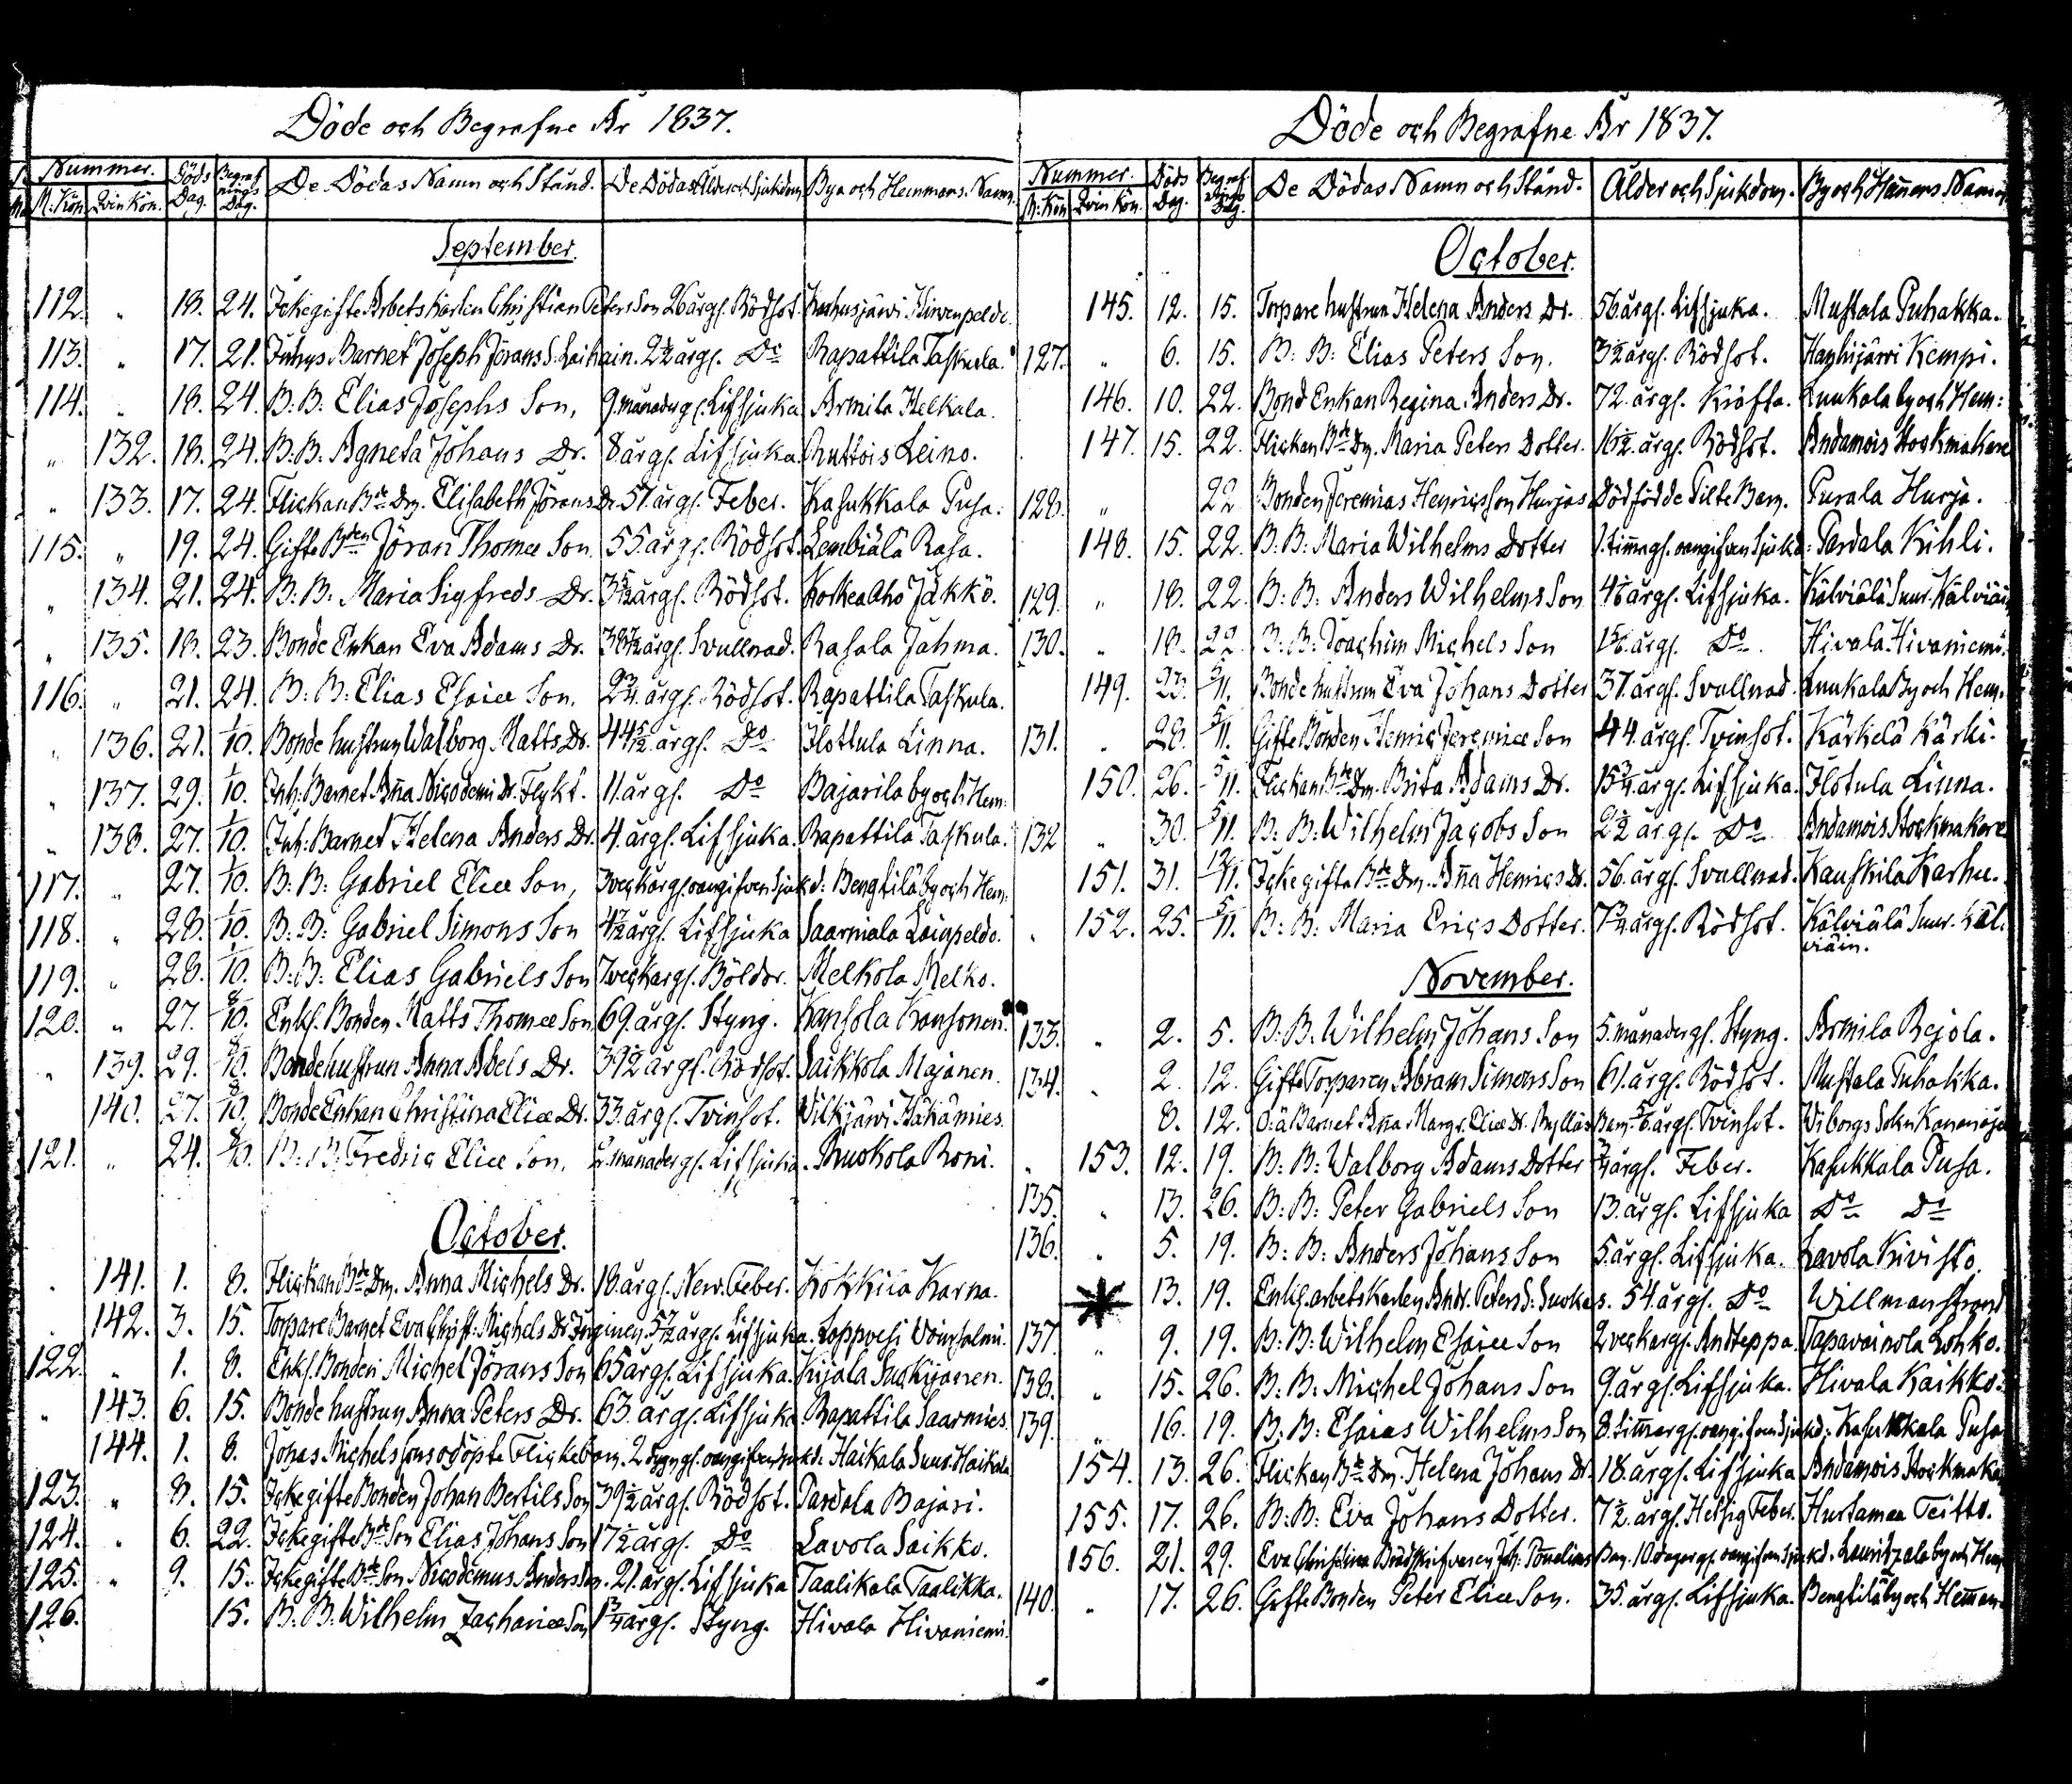 Döde och Begrafne År 1837.
Nummer. Döds Dag. Begrafnings Dag. De Dödas Namn och Stånd. De Dödas Ålder och Sjukdom. Bya och Hemmans Namn.
M: Kön Qvin Kön.
September.
112. " 18. 24. Ickegifte Arbetskarlen Christian Peters Son 26 årgl. Rödsot. Hirvenpelde.
113. " 17. 21. Inhys Barnet Joseph Jörans S. Laihain. 2½ årgl. Do Rapattila Taskula.
114. " 18. 24. B: B: Elias Josephs Son, 9. månadergl. Lifsjuka Armila Helkala.
" 132. 18. 24. B: B: Agneta Johans Dr. 8 årgl. Lifsjuka. Ruttois Leino.
" 133. 17. 24. Flickan Bde Dr. Elisabeth Jörans Dr. 51. årgl. Feber. Kasukkala Pusa.
115. " 19. 24. Gifte Bden Jöran Thomæ Son. 55. årgl. Rödsot. Lembiälä Rasa.
" 134. 21. 24. B: B: Maria Sigfreds Dr. 3 5/12 årgl. Rödsot. Korkea Aho Jäkkö.
" 135. 18. 23. Bonde Enkan Eva Adams Dr. årgl. Svullnad. Rasala Jahma.
116. " 21. 24. B: B: Elias Esaiæ Son. 2¾ årgl. Rödsot. Rapattila Taskula.
" 136. 21. 1/10. Bonde hustrun Walborg Matts Dr. 44 5/12 årgl. Do Ilottula Linna.
" 137. 29. 1/10. Inh: Barnet Aña Nicodemi Dr. Flykt. 11. årgl. Do Bajarila by och Hem:
" 138. 27. 1/10. Inh: Barnet Helena Anders Dr. 4. årgl. Lifsjuka. Rapattila Taskula.
117. " 27. 1/10. B: B: Gabriel Eliæ Son, 3 veckorgl. oangifven Sjukd: Bengtilä by och Hem:
118. " 28. 1/10. B: B: Gabriel Simons Son 4½ årgl. Lifsjuka Saarniala Loinpeldo.
119. " 28. 1/10. B: B: Elias Gabriels Son 7 veckorgl. Böldor. Melkola Melko.
120. " 27. 8/10. Enkl. Bonden Matts Thomæ Son 69. årgl. Styng. Kansola Konsonen.
" 139. 29. 8/10. Bondehustrun Anna Abels Dr. 39½ årgl. Rödsot. Saikkola Majanen.
140. 27. 8/10. Bonde Enkan Christina Eliæ Dr. 33. årgl. Tvinsot. Vilkjärvi Häkämies.
121. " 24. 8/10. B: B: Fredric Eliæ Son. 2. månadergl. Lifsjuka. Ruokola Roni.
October.
141. 1. 8. Flickan Bde Dr. Anna Michels Dr. 18. årgl. Nerv. Feber. Kokkila Karna.
142. 3. 15. Torpare Barnet Eva Christ: Michels Dr 5½ årgl. Lifsjuka. Loppvesi
122. " 1. 8. Enkl. Bonden Michel Jörans Son 65 årgl. Lifsjuka. Kijala Suckijanen.
" 143. 6. 15. Bonde hustrun Anna Peters Dr. 63. årgl. Lifsjuka Rapattila Saarnies.
144. 1. 8. Johas Michels sons odöpte Flickebarn. 2 dygngl. oangifven Sjukd: Haikala Suur Haikala
123. " 8. 15. Ickegifte Bonden Johan Bertils Son 39½ årgl. Rödsot. Pardala Bajari.
124. " 6. 22. Ickegifte Bde Son Elias Johans Son 17½ årgl. Do Lavola Saikko.
125. " 9. 15. Ickegifte Bde Son Nicodemus Anders Son. 21. årgl. Lifsjuka Taalikala Taalikka.
126. 15. B: B: Wilhelm Zachariæ Son 1¾ årgl. Styng. Hivala Hivaniemi.
Döde och Begrafne År 1837.
Nummer. Döds Dag. Begrafnings Dag. De Dödas Namn och Stånd. Ålder och Sjukdom. By och Hemans Namn
M: Kön Qvin Kön.
October.
145. 12. 15. Torpare hustrun Helena Anders Dr. 56 årgl. Lifsjuka. Mustala Puhakka.
127. " 6. 15. B: B: Elias Peters Son. 3½ årgl. Rödsot. Hanhijärvi Kempi.
146. 10. 22. Bond Enkan Regina Anders Dr. 72. årgl. Kräfta. Luukala by och Hem:
147. 15. 22. Flickan Bde Dr. Maria Peters Dotter. 16½ årgl. Rödsot. Andamois Stockmakare
128. " 22 Bonden Jeremias Henricsson Hurjas Dödfödde Pilte Barn. Purala Hurja.
148. 15. 22. B: B: Maria Wilhelms Dotter 1. timagl. oangifven Sjukd: Pardala Kihli.
129. " 18. 22. B: B: Anders Wilhelms Son årgl. Lifsjuka. Kälviälä Suur Kälviäin
130. " 18. 22. B: B: Joachim Michels Son årgl. Do Hivala Hivaniemi.
149. 23. 5/11. Bonde hustrun Eva Johans Dotter 37. årgl. Svullnad. Luukala By och Hem.
131. " 28. 5/11. Gifte Bonden Henric Jeremiæ Son 44. årgl. Tvinsot. Kärkelä Kärki.
150. 26. 5/11. Flickan Bde Dr. Brita Adams Dr. 15¾ årgl. Lifsjuka. Ilotula Linna.
132 " 30. 5/11. B: B: Wilhelm Jacobs Son 2½ årgl. Do Andamois Stockmakare
151. 31. 12/11. Ickegifta Bde Dr. Aña Henrics Dr. 56. årgl. Svullnad. Kauskila Karhu.
152. 25. 5/11. B: B: Maria Erics Dotter. 7¾ årgl. Rödsot. Kälviälä Suur Käl-
viäin.
November.
133. " 2. 5. B: B: Wilhelm Johans Son 5. månadergl. Styng. Armila Rejola.
134. " 2. 12. Gifte Torparen Abram Simons Son 61. årgl. Rödsot. Mustala Puhakka.
8. 12. O: ä Barnet Aña Margr. Eliæ Dr. årgl. Tvinsot. Wiborgs Sokn
" 153. 12. 19. B: B: Walborg Adams Dotter ¾ årgl. Feber. Kasukkala Pusa.
135. " 13. 26. B: B: Peter Gabriels Son 13. årgl. Lifsjuka Do Do
136. " 5. 19. B: B: Anders Johans Son 5. årgl. Lifsjuka. Lavola Kivisto.
13. 19. Enkl. arbetskarlen Andr. Peters S: 54. årgl. Do Willmanstrand
137. " 9. 19. B: B: Wilhelm Esaiæ Son 2 veckorgl. Andteppa. Tapavainola Lohko.
138. " 15. 26. B: B: Michel Johans Son 9. årgl. Lifsjuka. Hivala Kaikko.
139. " 16. 19. B: B: Esaias Wilhelms Son 8. timargl. oangifven Sjukd: Kasukkala Pusa
154. 13. 26. Flickan Bde Dr. Helena Johans Dr. 18. årgl. Lifsjuka Andamois Stockmaka
155. 17. 26. B: B: Eva Johans Dotter. 7½ årgl. Hetsig Feber. Hurtamaa Teitto.
156. 21. 29. Eva Christina Barn. 10. dagargl. oangifven Sjukd. Lauritzala by och Hem
140. " 17. 26. Gifte Bonden Peter Eliæ Son. 35. årgl. Lifsjuka. Bengtilä by och Heman